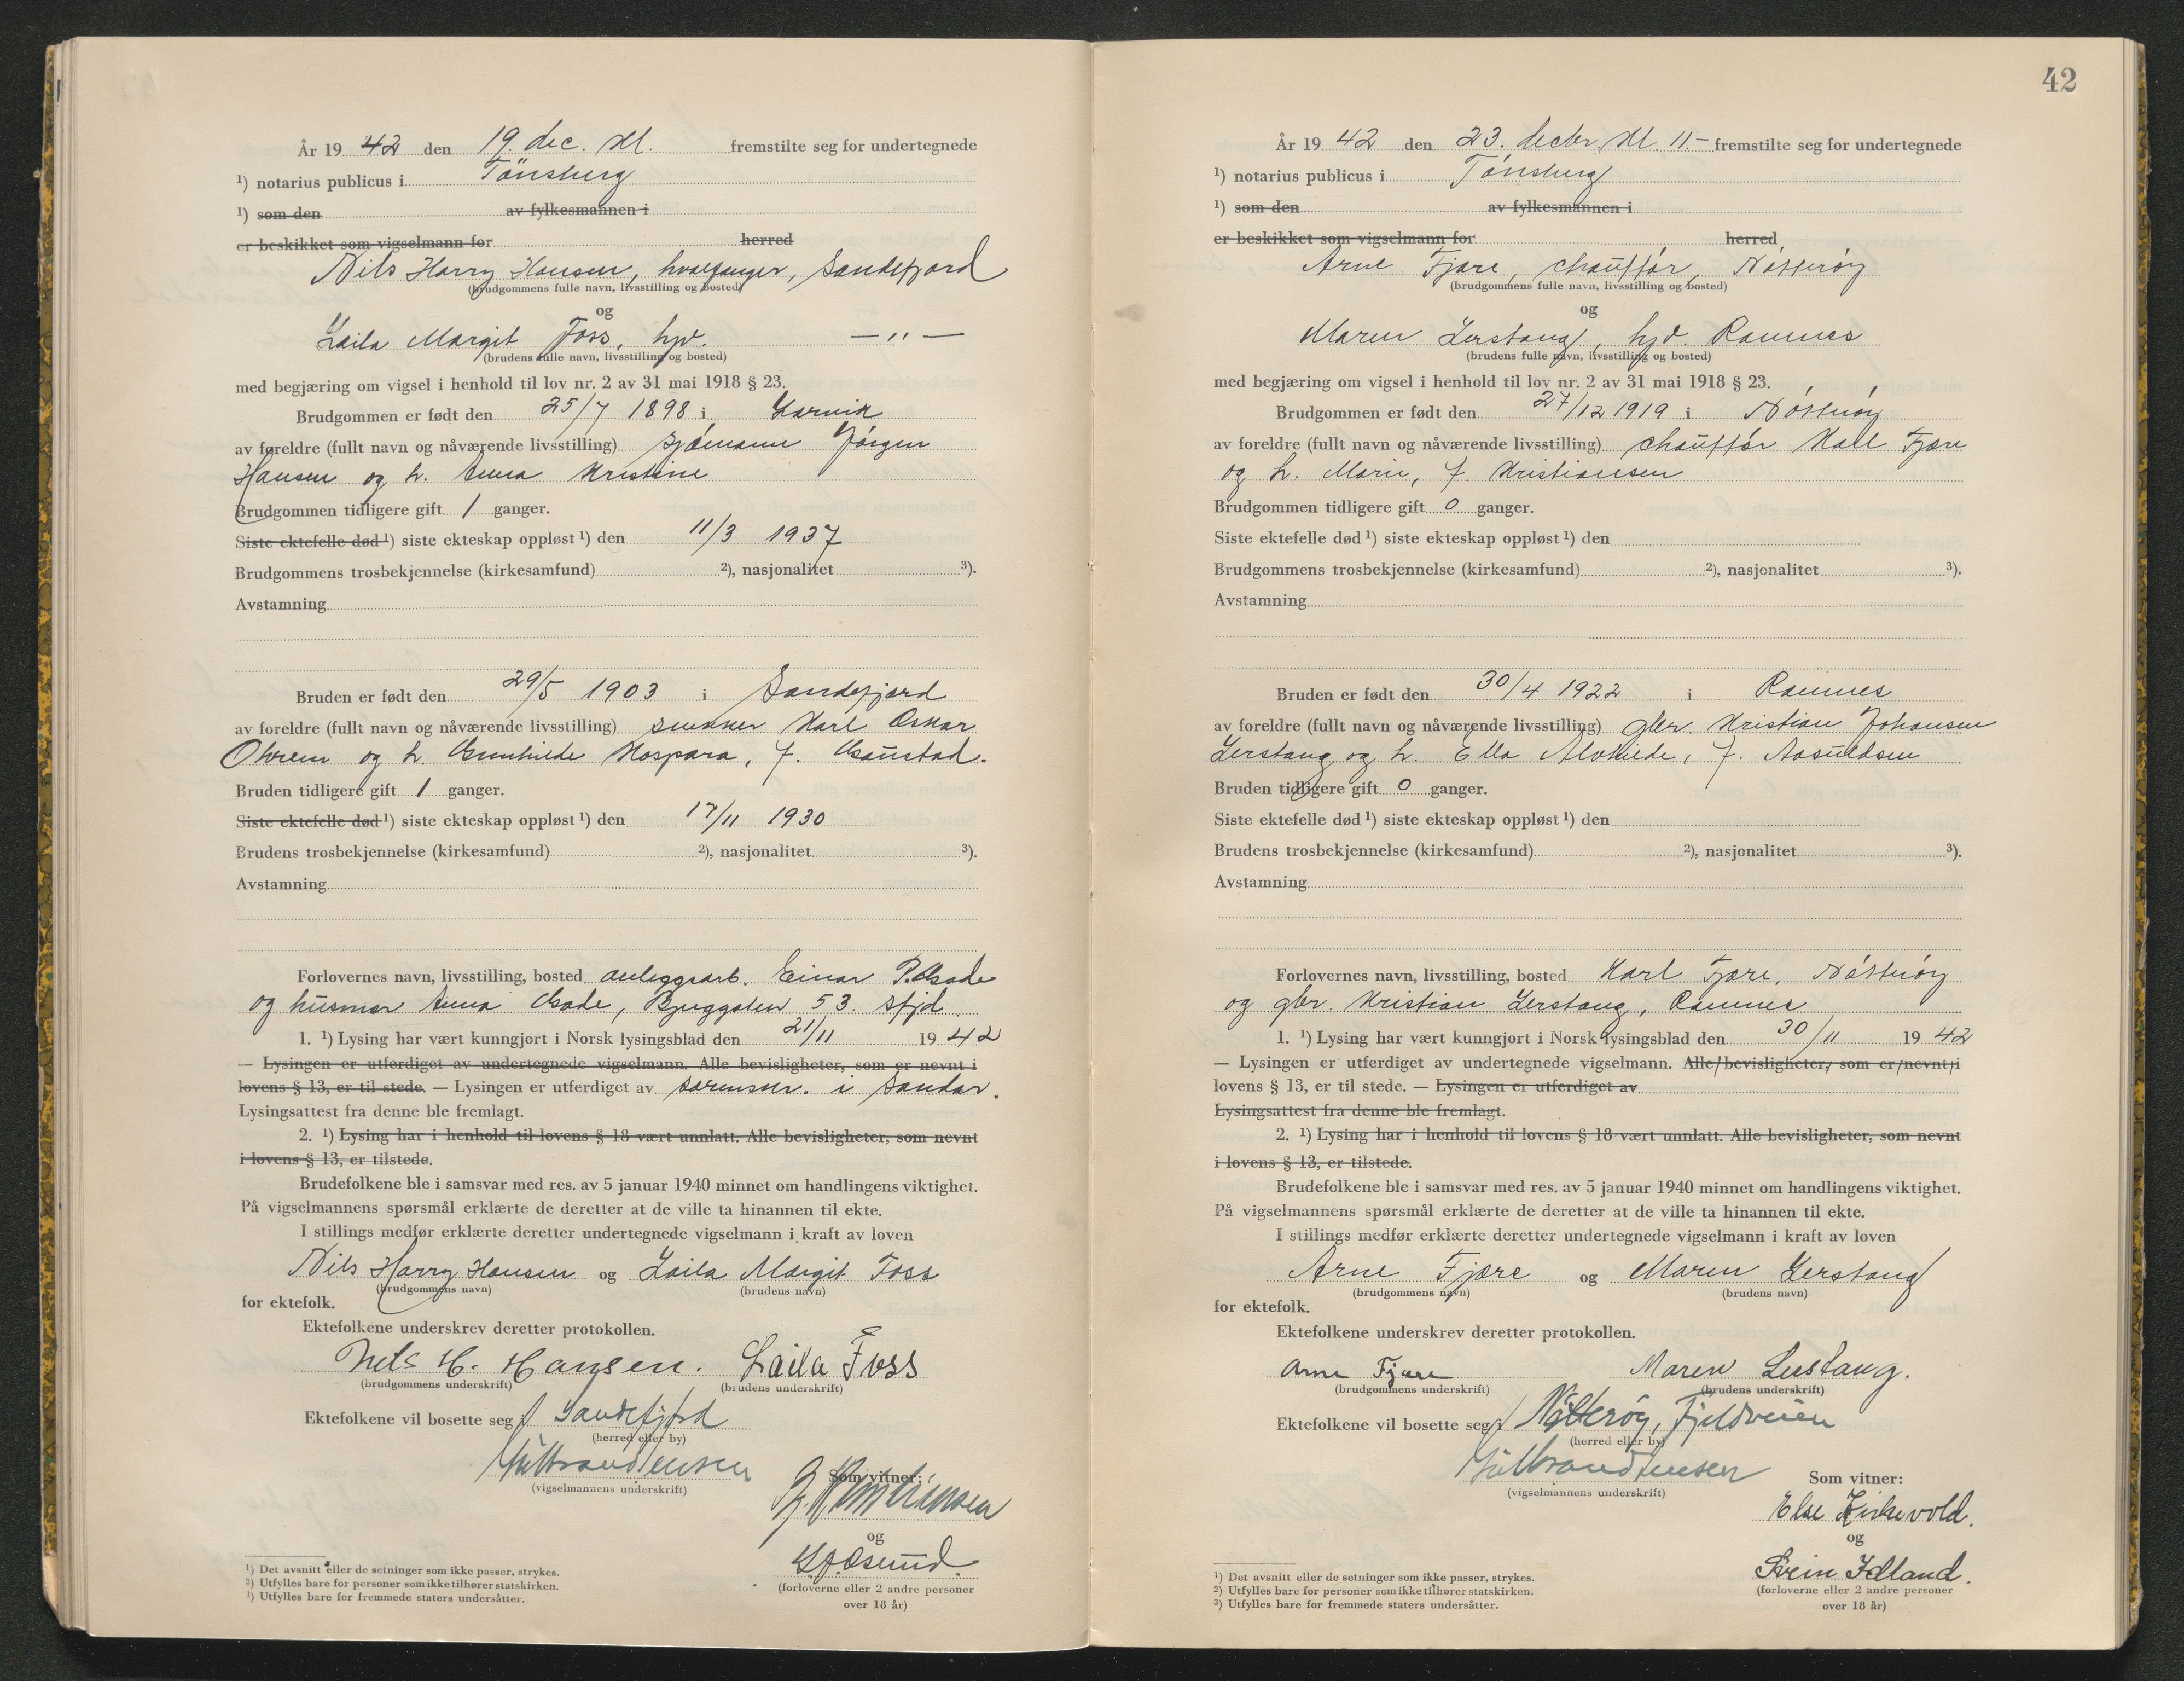 År 19 42 den 19. dec. kl. fremstilte seg for undertegnede
¹) notarius publicus i Tönsberg
¹) som den av fylkesmannen i
er beskikket som vigselmann for herred
Nils Harry Hansen, hvalfanger, Sandefjord
(brudgommens fulle navn, livsstilling og bosted)
og
Laila Margit Foss, hjv. — " —
(brudens fulle navn, livsstilling og bosted)
med begjæring om vigsel i henhold til lov nr. 2 av 31 mai 1918 § 23.
Brudgommen er født den 25/7 1898 i Larvik
av foreldre (fullt navn og nåværende livsstilling) sjómann Jörgen
Hansen og h. Anna Kristine
Brudgommen tidligere gift 1 ganger.
Siste ektefelle død ¹) siste ekteskap oppløst ¹) den 11/3 1937
Brudgommens trosbekjennelse (kirkesamfund) ²), nasjonalitet ³).
Avstamning
Bruden er født den 29/5 1903 i Sandefjord
av foreldre (fullt navn og nåværende livsstilling) snekker Karl Oskar
Ohren og h. Gunhilde Kaspara, f. Gaustad.
Bruden tidligere gift 1 ganger.
Siste ektefelle død ¹) siste ekteskap oppløst ¹) den 17/11 1930
Brudens trosbekjennelse (kirkesamfund) ²), nasjonalitet ³).
Avstamning
Forlovernes navn, livsstilling, bosted anleggsarb. Einar P. Gade
og husmor Anna Gade, Bjuggaten 53. Sfjd.
1. ¹) Lysing har vært kunngjort i Norsk lysingsblad den 21/11 19 42
— Lysingen er utferdiget av undertegnede vigselmann. Alle bevisligheter, som er nevnt i
lovens § 13, er til stede. — Lysingen er utferdiget av sorenskr. i Sandar.
Lysingsattest fra denne ble fremlagt.
2. ¹) Lysing har i henhold til lovens § 18 vært unnlatt. Alle bevisligheter, som nevnt
i lovens § 13, er tilstede.
Brudefolkene ble i samsvar med res. av 5 januar 1940 minnet om handlingens viktighet.
På vigselmannens spørsmål erklærte de deretter at de ville ta hinannen til ekte.
I stillings medfør erklærte deretter undertegnede vigselmann i kraft av loven
Nils Harry Hansen og Laila Margit Foss
(brudgommens navn) (brudens navn)
for ektefolk.
Ektefolkene underskrev deretter protokollen.
Nils H. Hansen. Laila Foss
(brudgommens underskrift) (brudens underskrift)
Ektefolkene vil bosette seg i Sandefjord
(herred eller by)
(vigselmannens underskrift)
Som vitner:
og
(forloverne eller 2 andre personer
over 18 år)
¹) Det avsnitt eller de setninger som ikke passer, strykes.
²) Utfylles bare for personer som ikke tilhører statskirken.
³) Utfylles bare for fremmede staters undersåtter.
42
År 19 42 den 23. decbr. kl. 11.– fremstilte seg for undertegnede
¹) notarius publicus i Tönsberg
¹) som den av fylkesmannen i
er beskikket som vigselmann for herred
Arne Fjære, chauffór, Nótteróy
(brudgommens fulle navn, livsstilling og bosted)
og
Maren Lerstang, hjv. Ramnes
(brudens fulle navn, livsstilling og bosted)
med begjæring om vigsel i henhold til lov nr. 2 av 31 mai 1918 § 23.
Brudgommen er født den 27/12 1919 i Nótteróy
av foreldre (fullt navn og nåværende livsstilling) chauffór Karl Fjære
og h. Marie, f. Kristiansen
Brudgommen tidligere gift 0 ganger.
Siste ektefelle død ¹) siste ekteskap oppløst ¹) den
Brudgommens trosbekjennelse (kirkesamfund) ²), nasjonalitet ³).
Avstamning
Bruden er født den 30/4 1922 i Ramnes
av foreldre (fullt navn og nåværende livsstilling) gbr. Kristian Johansen
Lerstang og h. Ella Alvhilde, f. Aasuldsen
Bruden tidligere gift 0 ganger.
Siste ektefelle død ¹) siste ekteskap oppløst ¹) den
Brudens trosbekjennelse (kirkesamfund) ²), nasjonalitet ³).
Avstamning
Forlovernes navn, livsstilling, bosted Karl Fjære, Nótteróy
og gbr. Kristian Lerstang, Ramnes
1. ¹) Lysing har vært kunngjort i Norsk lysingsblad den 30/11 19 42
— Lysingen er utferdiget av undertegnede vigselmann. Alle bevisligheter, som er nevnt i
lovens § 13, er til stede. — Lysingen er utferdiget av
Lysingsattest fra denne ble fremlagt.
2. ¹) Lysing har i henhold til lovens § 18 vært unnlatt. Alle bevisligheter, som nevnt
i lovens § 13, er tilstede.
Brudefolkene ble i samsvar med res. av 5 januar 1940 minnet om handlingens viktighet.
På vigselmannens spørsmål erklærte de deretter at de ville ta hinannen til ekte.
I stillings medfør erklærte deretter undertegnede vigselmann i kraft av loven
Arne Fjære og Maren Lerstang
(brudgommens navn) (brudens navn)
for ektefolk.
Ektefolkene underskrev deretter protokollen.
Arne Fjære Maren Lerstang.
(brudgommens underskrift) (brudens underskrift)
Ektefolkene vil bosette seg i Nøtterøy, Fjeldveien
(herred eller by)
(vigselmannens underskrift)
Som vitner:
Else Kirkevold.
og
Svein Idland.
(forloverne eller 2 andre personer
over 18 år)
¹) Det avsnitt eller de setninger som ikke passer, strykes.
²) Utfylles bare for personer som ikke tilhører statskirken.
³) Utfylles bare for fremmede staters undersåtter.